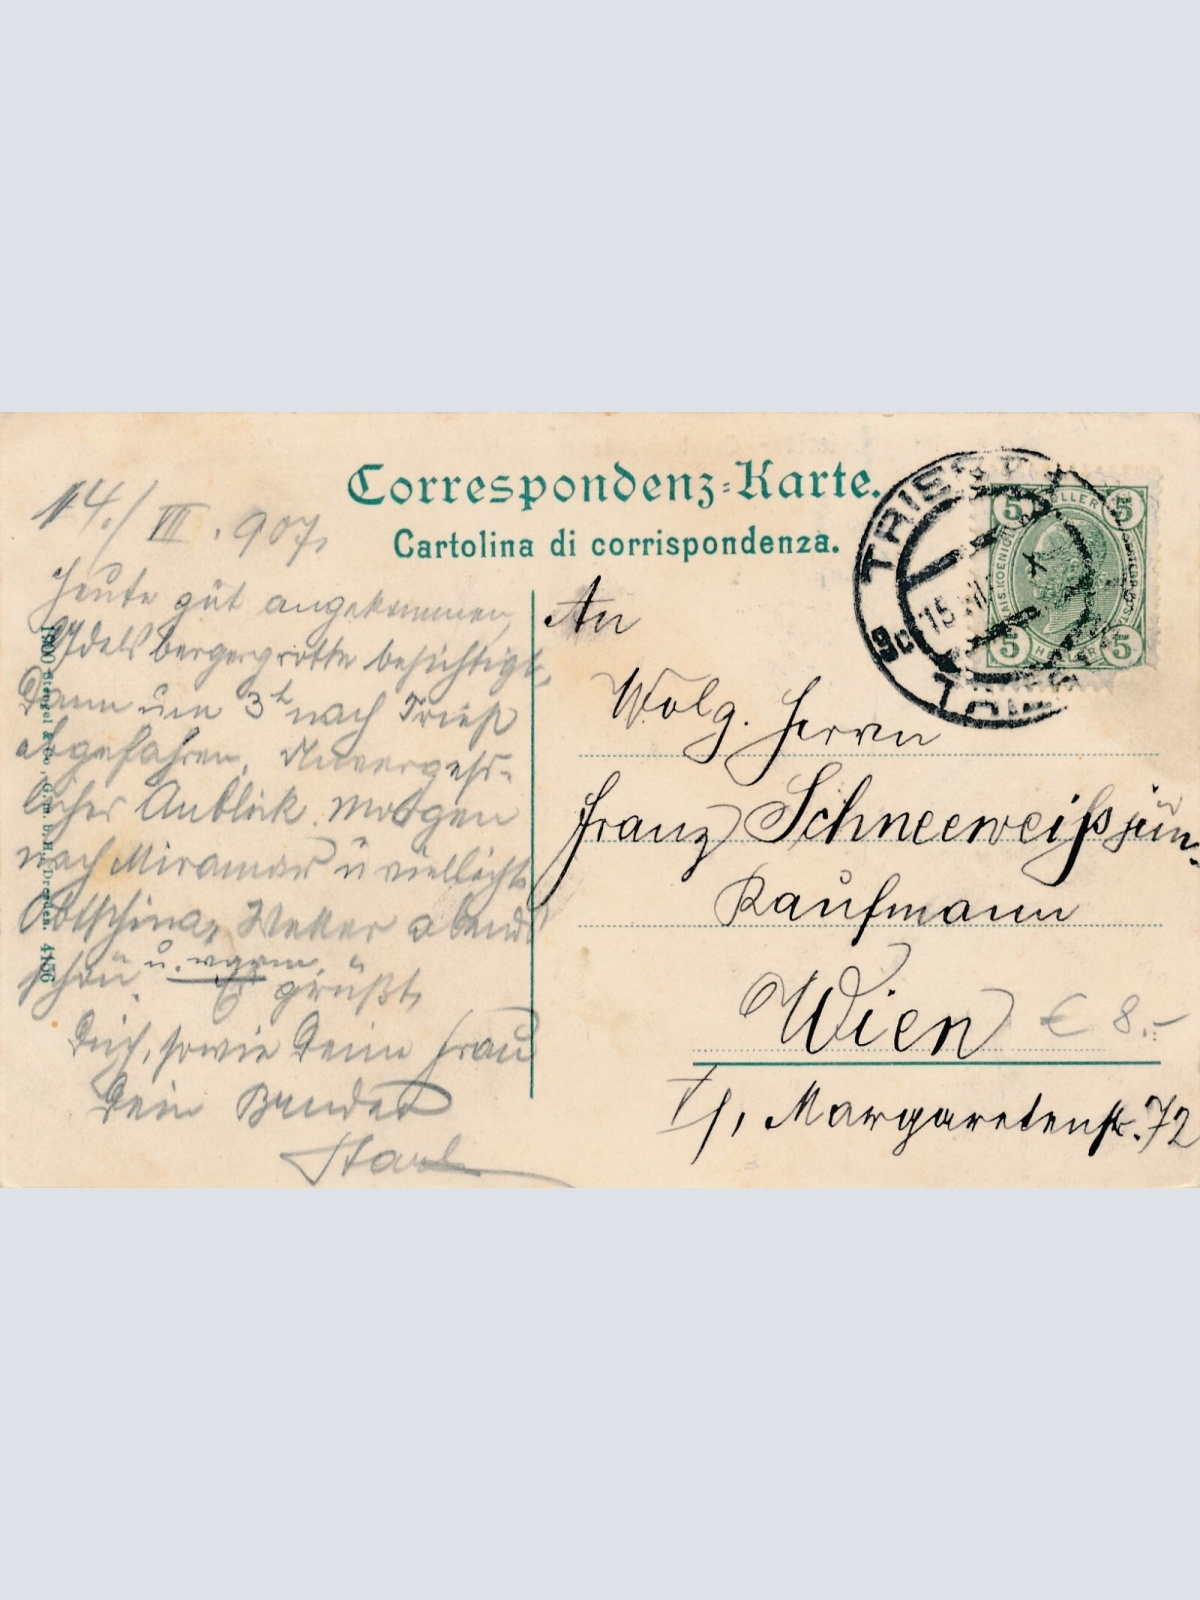 Correspondenz-Karte.
Cartolina di corrispondenza.
14./VII. 907.
Heute gut angekommen,
Adelsbergergrotte besichtigt,
Dann um 3h nach Triest
abgefahren, Unvergess-
licher Anblick. Morgen
nach Miramar u vielleicht
Obtschina, Wetter abends
schön u. warm. Es grüßt
Dich, sowie Deine Frau
Dein Bruder
Karl
1900 Stengel & Co., G. m. b. H., Dresden. 4156
TRIEST
9c
15 VII
TRIES
5 5
HELLER
5 HELLER 5
An
Wolg. Herrn
Franz Schneeweiß jun.
Kaufmann
Wien
€ 8.-
Margaretenstr. 72